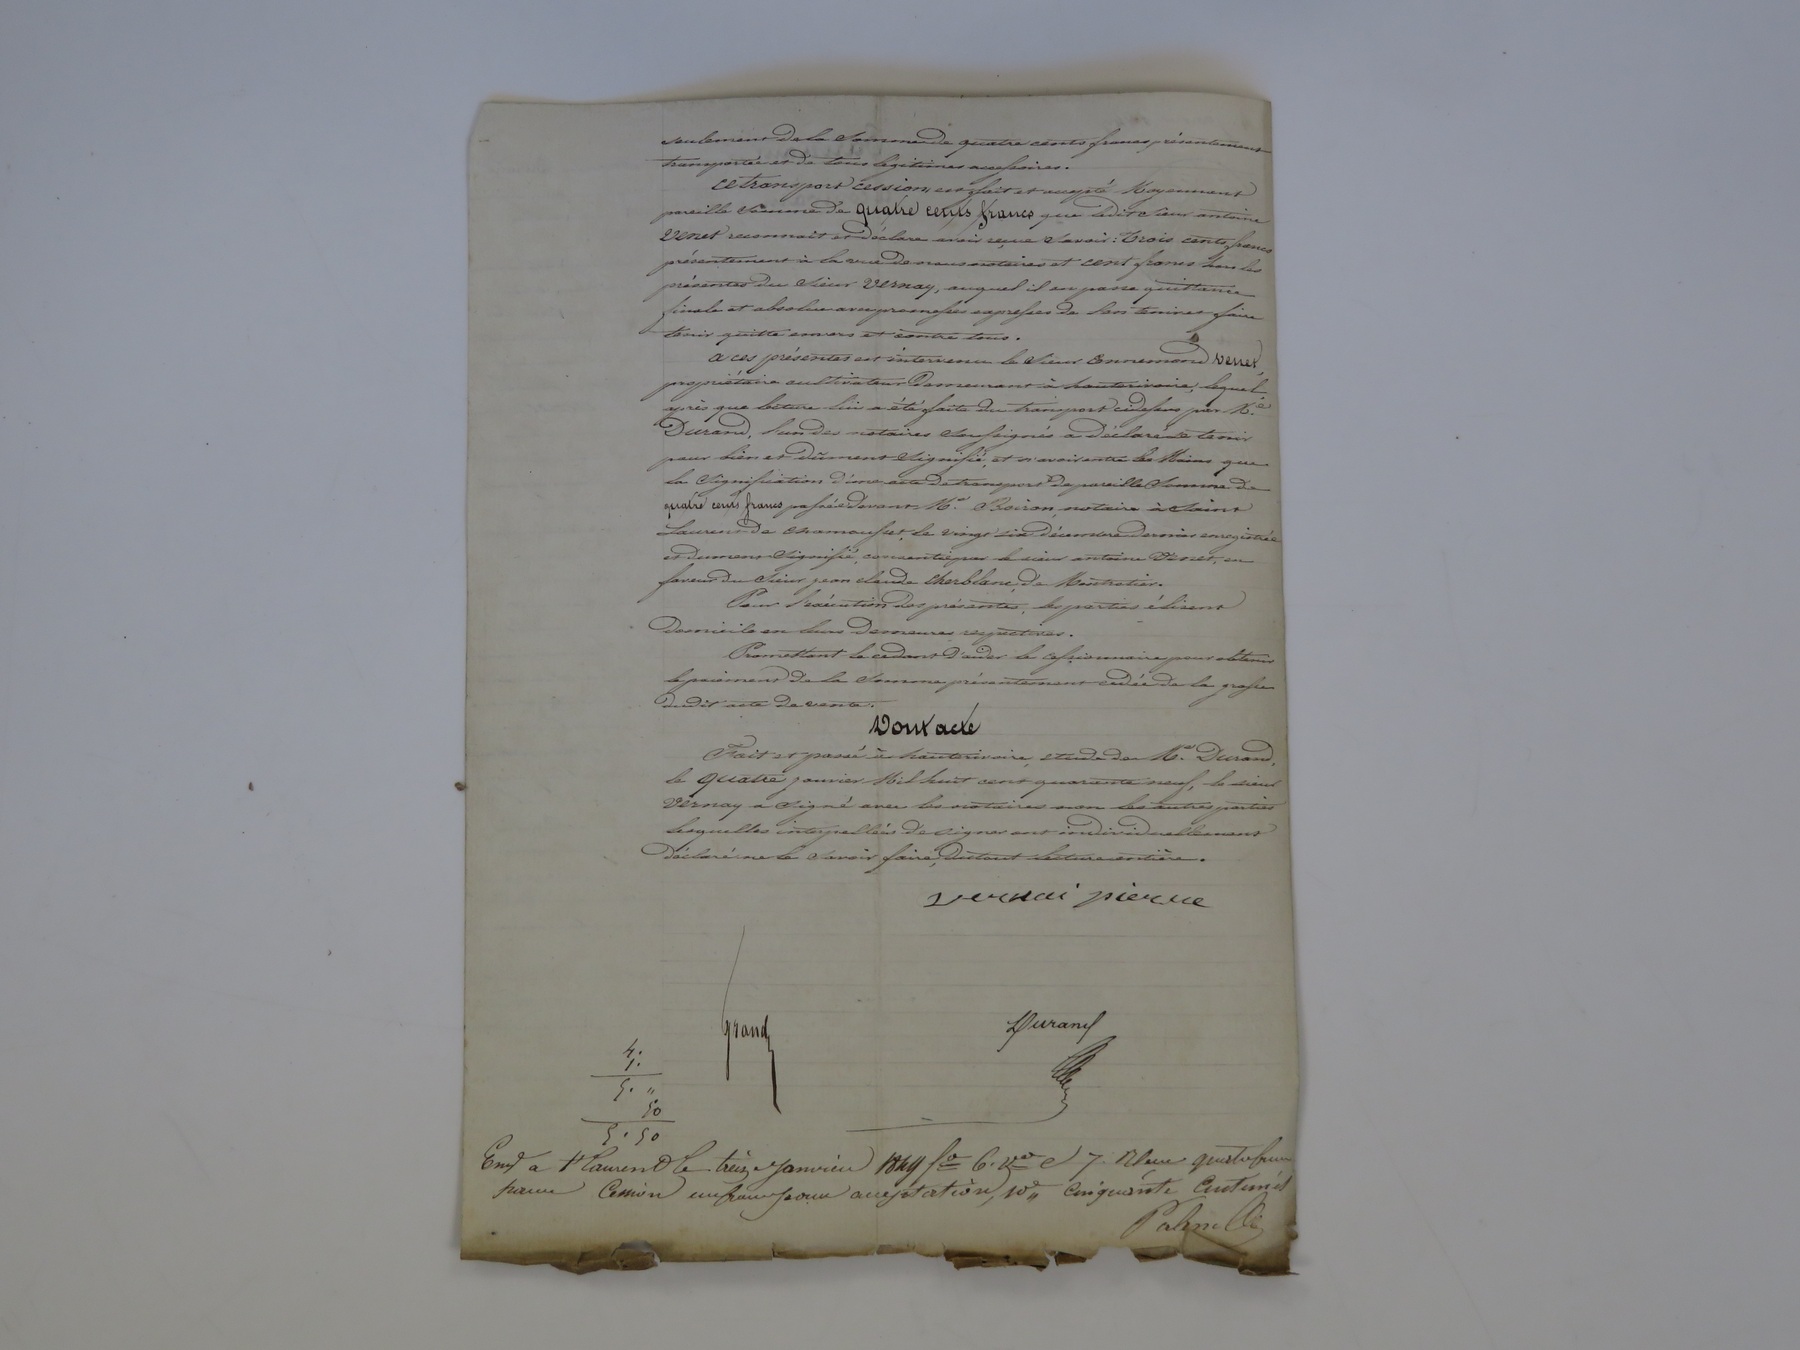 seulement de la Somme de quatre cents francs présentement
transportée et de tous légitimes accessoires.
Ce transport cession est fait et accepté Moyennant
pareille Somme de quatre cents francs que ledit Sieur antoine
Venet reconnait et déclare avoir reçue Savoir : trois cents francs
présentement à la vue de nous notaires et cent francs hors les
présentes du Sieur Vernay, auquel il en passe quittance
finale et absolue avec promesses expresses de l'en tenir et faire
tenir quitte envers et contre tous.
a ces présentes est intervenu le Sieur Ennemond Venet,
propriétaire cultivateur demeurant à hauterivoire, lequel
après que lecture lui a été faite du transport cidessus par Me
Durand, l'un des notaires Soussignés a déclaré le tenir
pour bien et dûment Signifié, et n'avoir entre les Mains que
la Signification d'un acte de transport de pareille Somme de
quatre cents francs passé devant Me Boiron, notaire à Saint
Laurent de Chamousset, le vingt six décembre dernier enregistré
et dument Signifié, consentie par le sieur antoine Venet, en
faveur du Sieur jean claude Cherblanc, de Montrotier.
Pour l'exécution des présentes, les parties élisent
domicile en leurs demeures respectives.
Promettant le cédant d'aider le cessionnaire pour obtenir
le paiement de la Somme présentement cédée de la grosse
dudit acte de vente.
Dont acte
Fait et passé à hauterivoire, etude de Me Durand,
le quatre janvier Mil huit cent quarante neuf, le sieur
Vernay a Signé avec les notaires non les autres parties
lesquelles interpellées de signer ont individuellement
déclaré ne le Savoir faire, du tout lecture entière.
vernai pierre
grand
Durand
4.
1.
5. "
50
5. 50
Enr a St Laurent le treize Janvier 1849 fo 6. vo c 7. Reçu quatre francs
pour Cession un franc pour acceptation, 10e cinquante Centimes